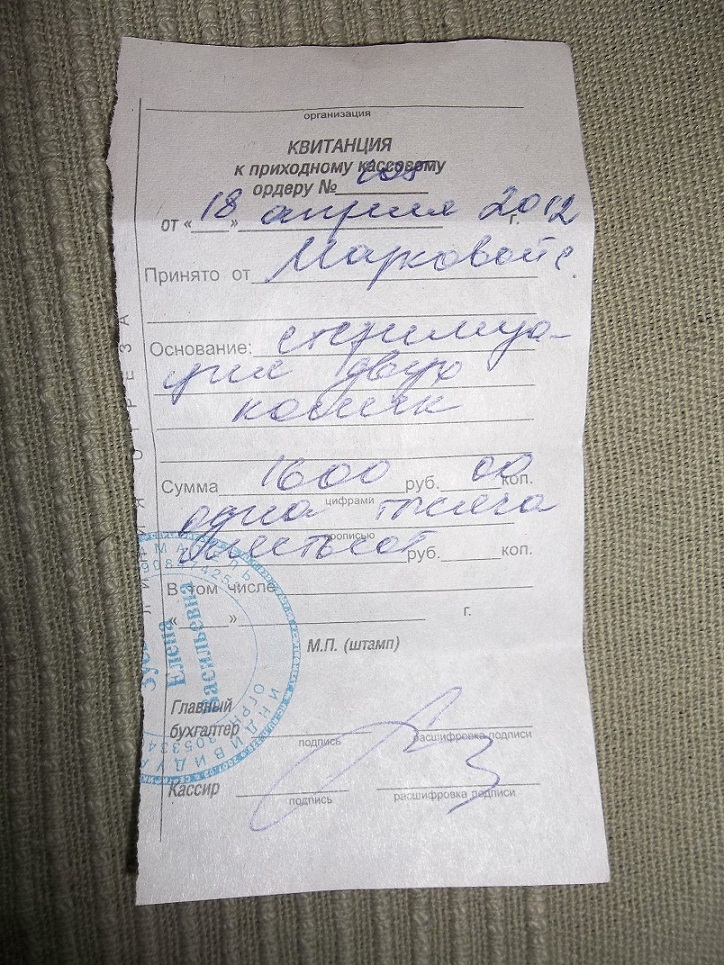 организация
КВИТАНЦИЯ
к приходному кассовому
ордеру № 105
от « 18 » апреля 2012 г.
Принято от Марковой С.
Основание: стерилиза-
ция двух
кошек
Сумма 1600 руб. 00 коп.
цифрами
одна тысяча
прописью
шестьсот руб. коп.
В том числе
« » г.
М.П. (штамп)
Елена
Васильевна
ОГРН
ИНДИВИДУ
Главный
бухгалтер
подпись расшифровка подписи
Кассир
подпись расшифровка подписи
ЛИНИЯ ОТРЕЗА